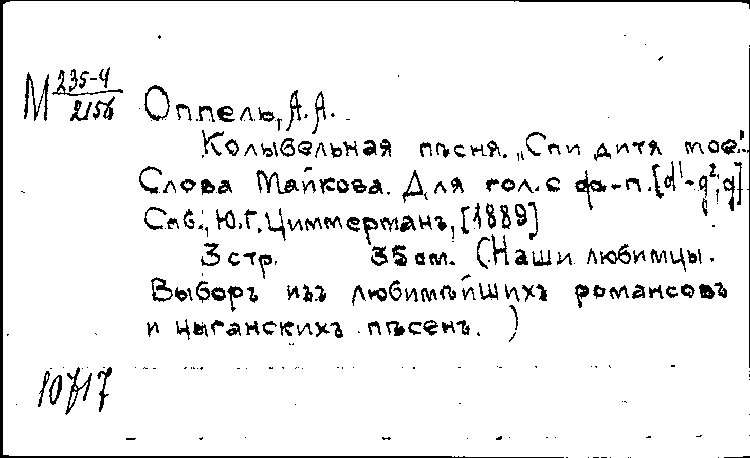 М 235-4/2156 Оппель, А.А.
Колыбельная пѣсня. „Спи дитя мое".
Слова Майкова. Для гол. с фо-п. [d¹-g², g]
Спб., Ю.Г. Циммерманъ, [1889]
3 стр. 35 см. (Наши любимцы.
Выборъ изъ любимѣйшихъ романсовъ
и цыганскихъ пѣсенъ.)
10717